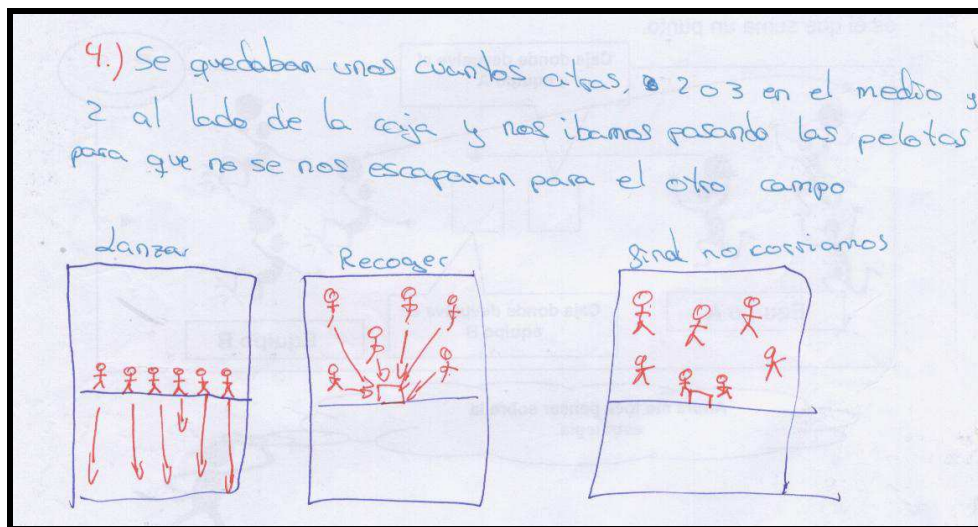 4.) Se quedaban unos cuantos atras, 2 o 3 en el medio y
2 al lado de la caja y nos ibamos pasando las pelotas
para que no se nos escaparan para el otro campo
Lanzar
Recoger
no corriamos